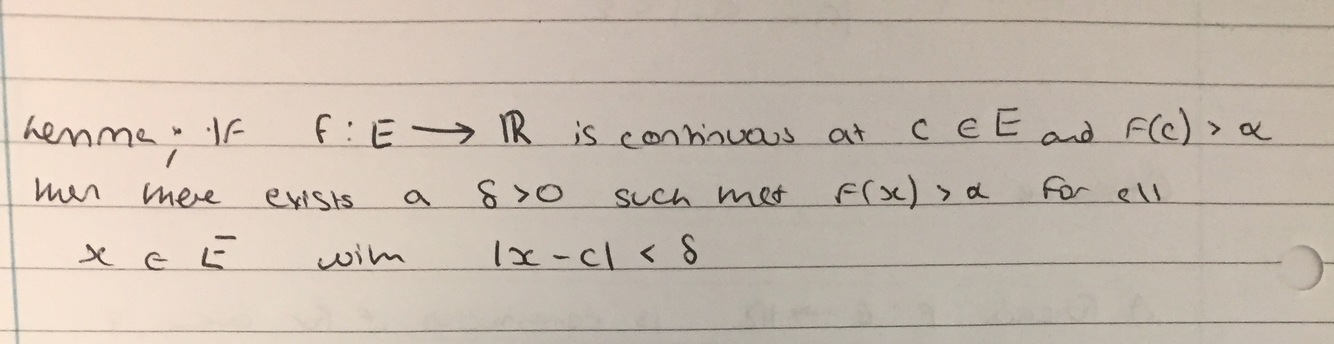 Lemma; If f: E → ℝ is continuous at c ∈ E and f(c) > α
then there exists a δ>0 such that f(x) > α for all
x ∈ E with |x - c| < δ